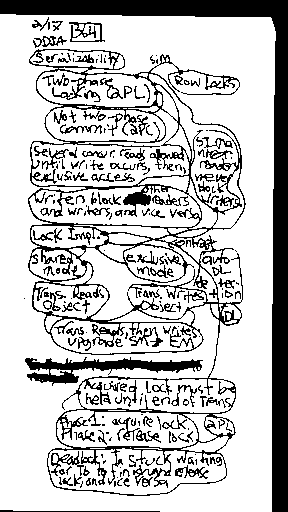 2/17 364
DDIA
Serializability
sim
Two-phase
Locking (2PL)
Row Locks
Not two-phase
commit (2PC)
Several concur. reads allowed
until write occurs, then
exclusive access
SI mantra:
readers
never
block
writers
Writers block other readers
and writers, and vice versa
Lock Impl.
contrast
shared
mode
exclusive
mode
auto
DL
detection
Trans. Reads
Object
Trans. Writes
Object
DL
Trans. Reads, then writes,
upgrade SM → EM
Acquired lock must be
held until end of Trans.
Phase 1: acquire lock
Phase 2: release lock
2PL
Deadlock: Ta stuck waiting
for Tb to finish and release
lock, and vice versa